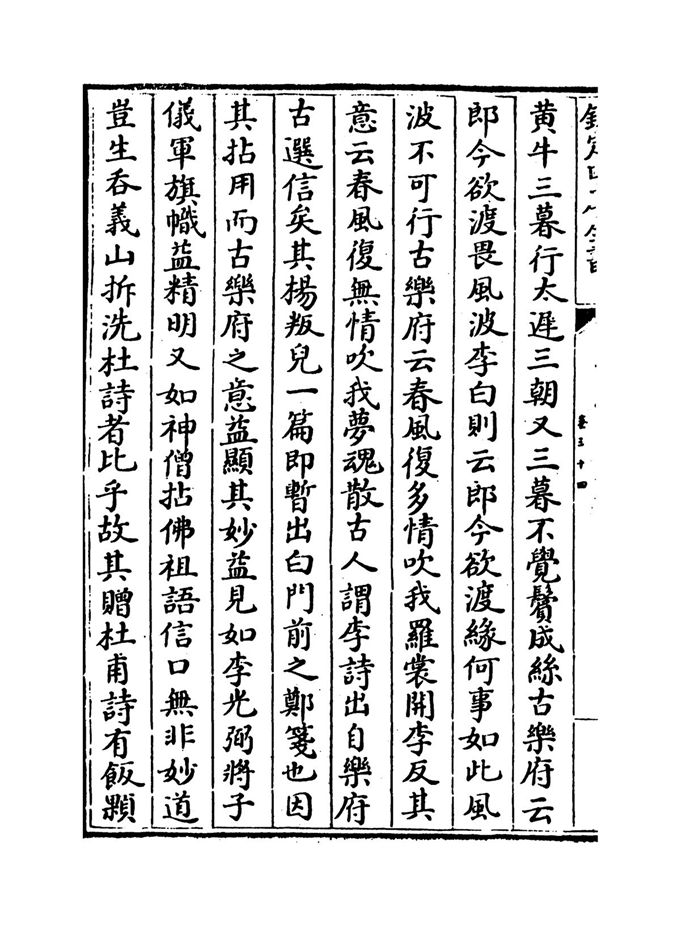 黄牛三暮行太遲三朝又三暮不覺鬢成絲古樂府云
郎今欲渡畏風波李白則云郎今欲渡緣何事如此風
波不可行古樂府云春風復多情吹我羅裳開李反其
意云春風復無情吹我夢魂散古人謂李詩出自樂府
古選信矣其楊叛兒一篇即暫出白門前之鄭箋也因
其拈用而古樂府之意益顯其妙益見如李光弼將子
儀軍旗幟益精明又如神僧拈佛祖語信口無非妙道
豈生吞義山拆洗杜詩者比乎故其贈杜甫詩有飯顆
卷三十四